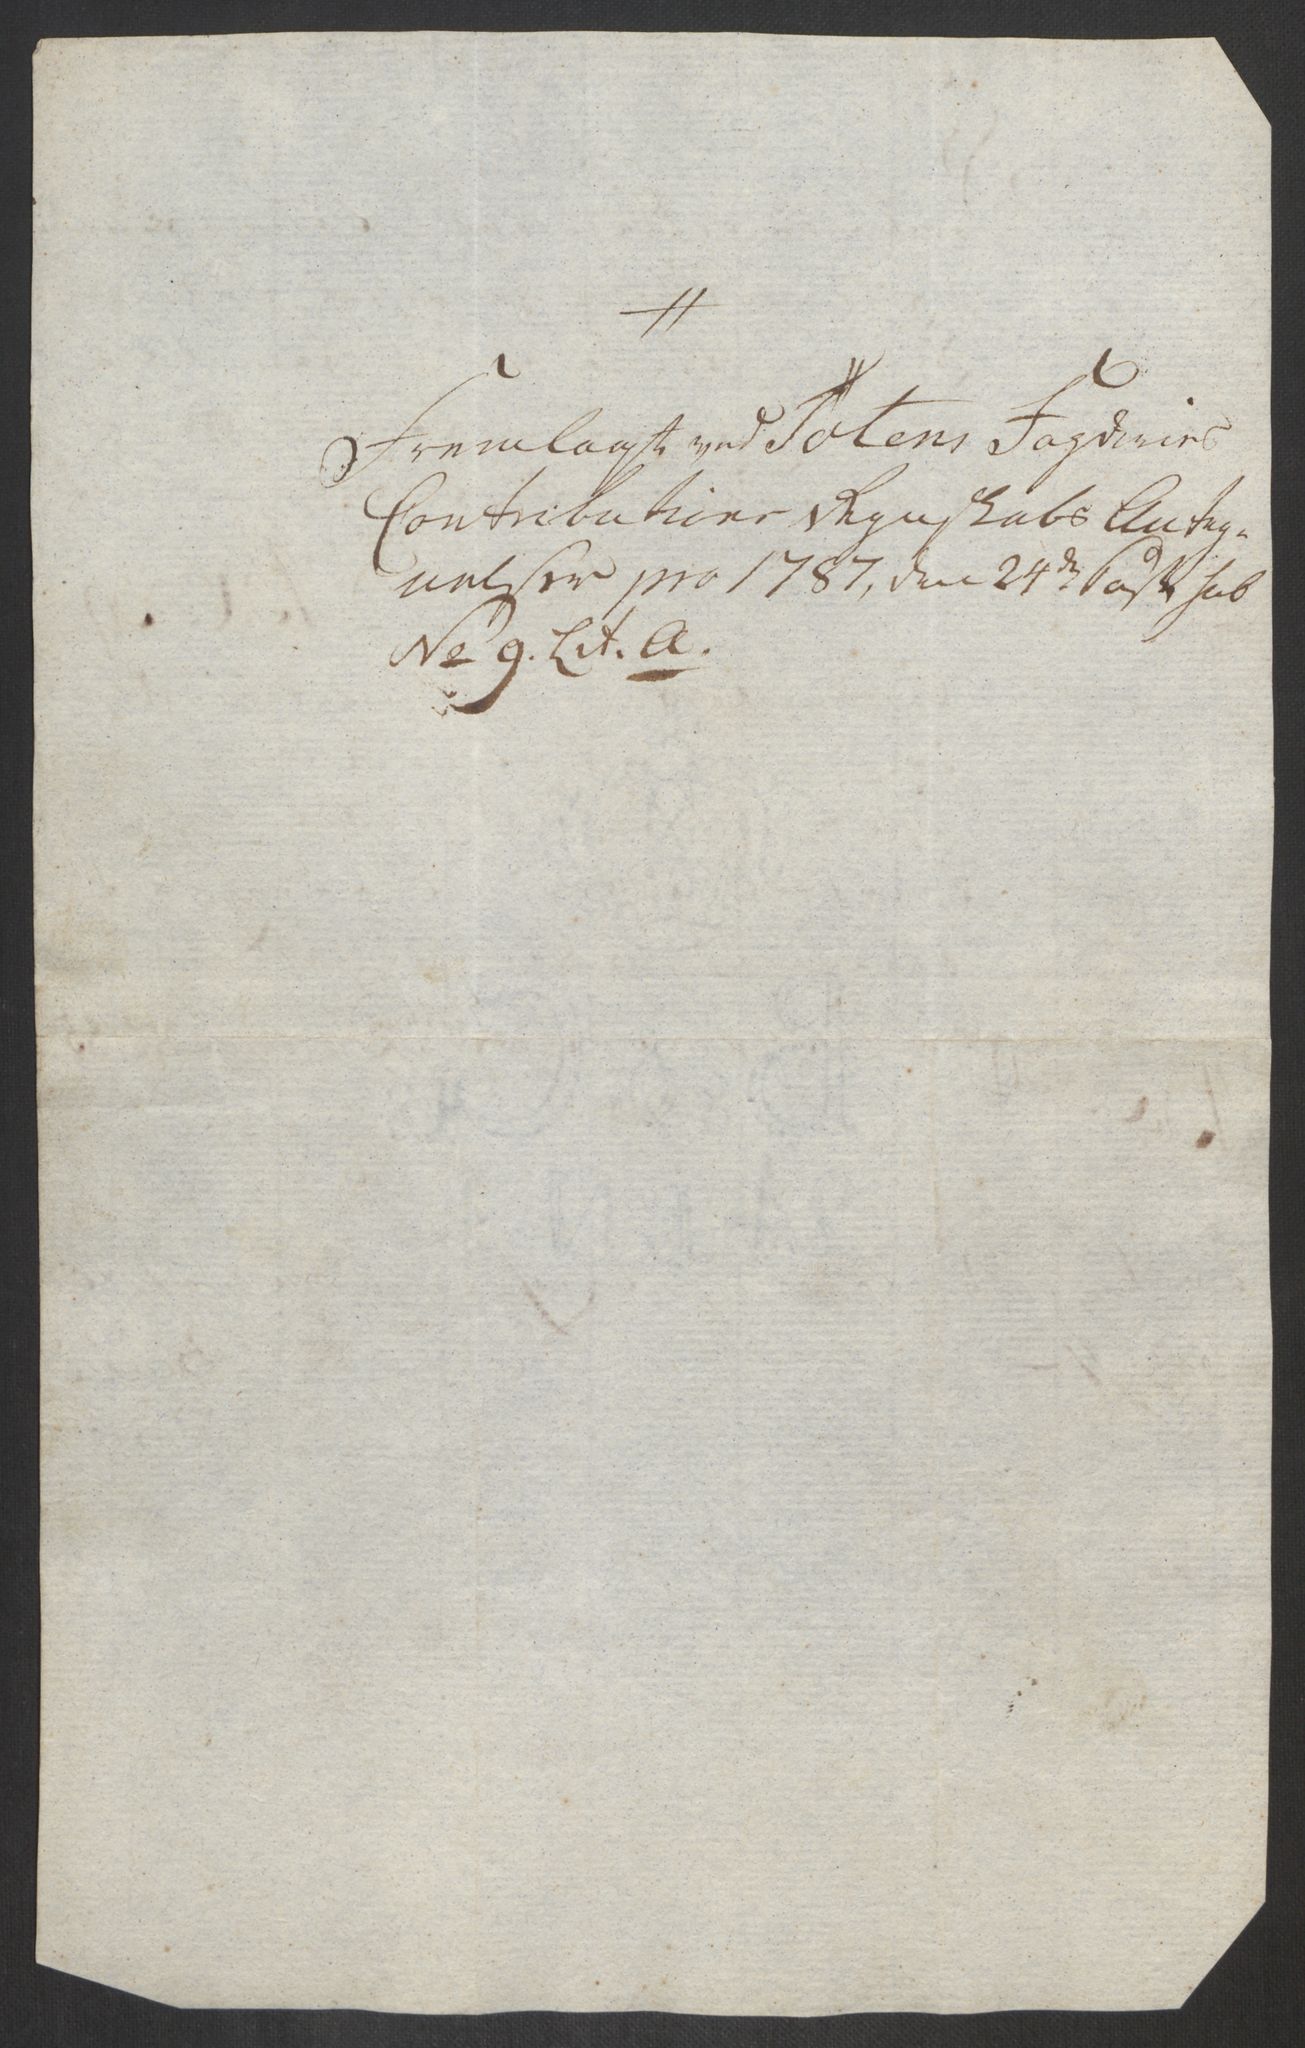 #
Fremlagt ved Totens Fogderies
Contributions Regnskabs Anteg-
nelser pro 1787, den 24de Post sub
No 9. Lit. A.